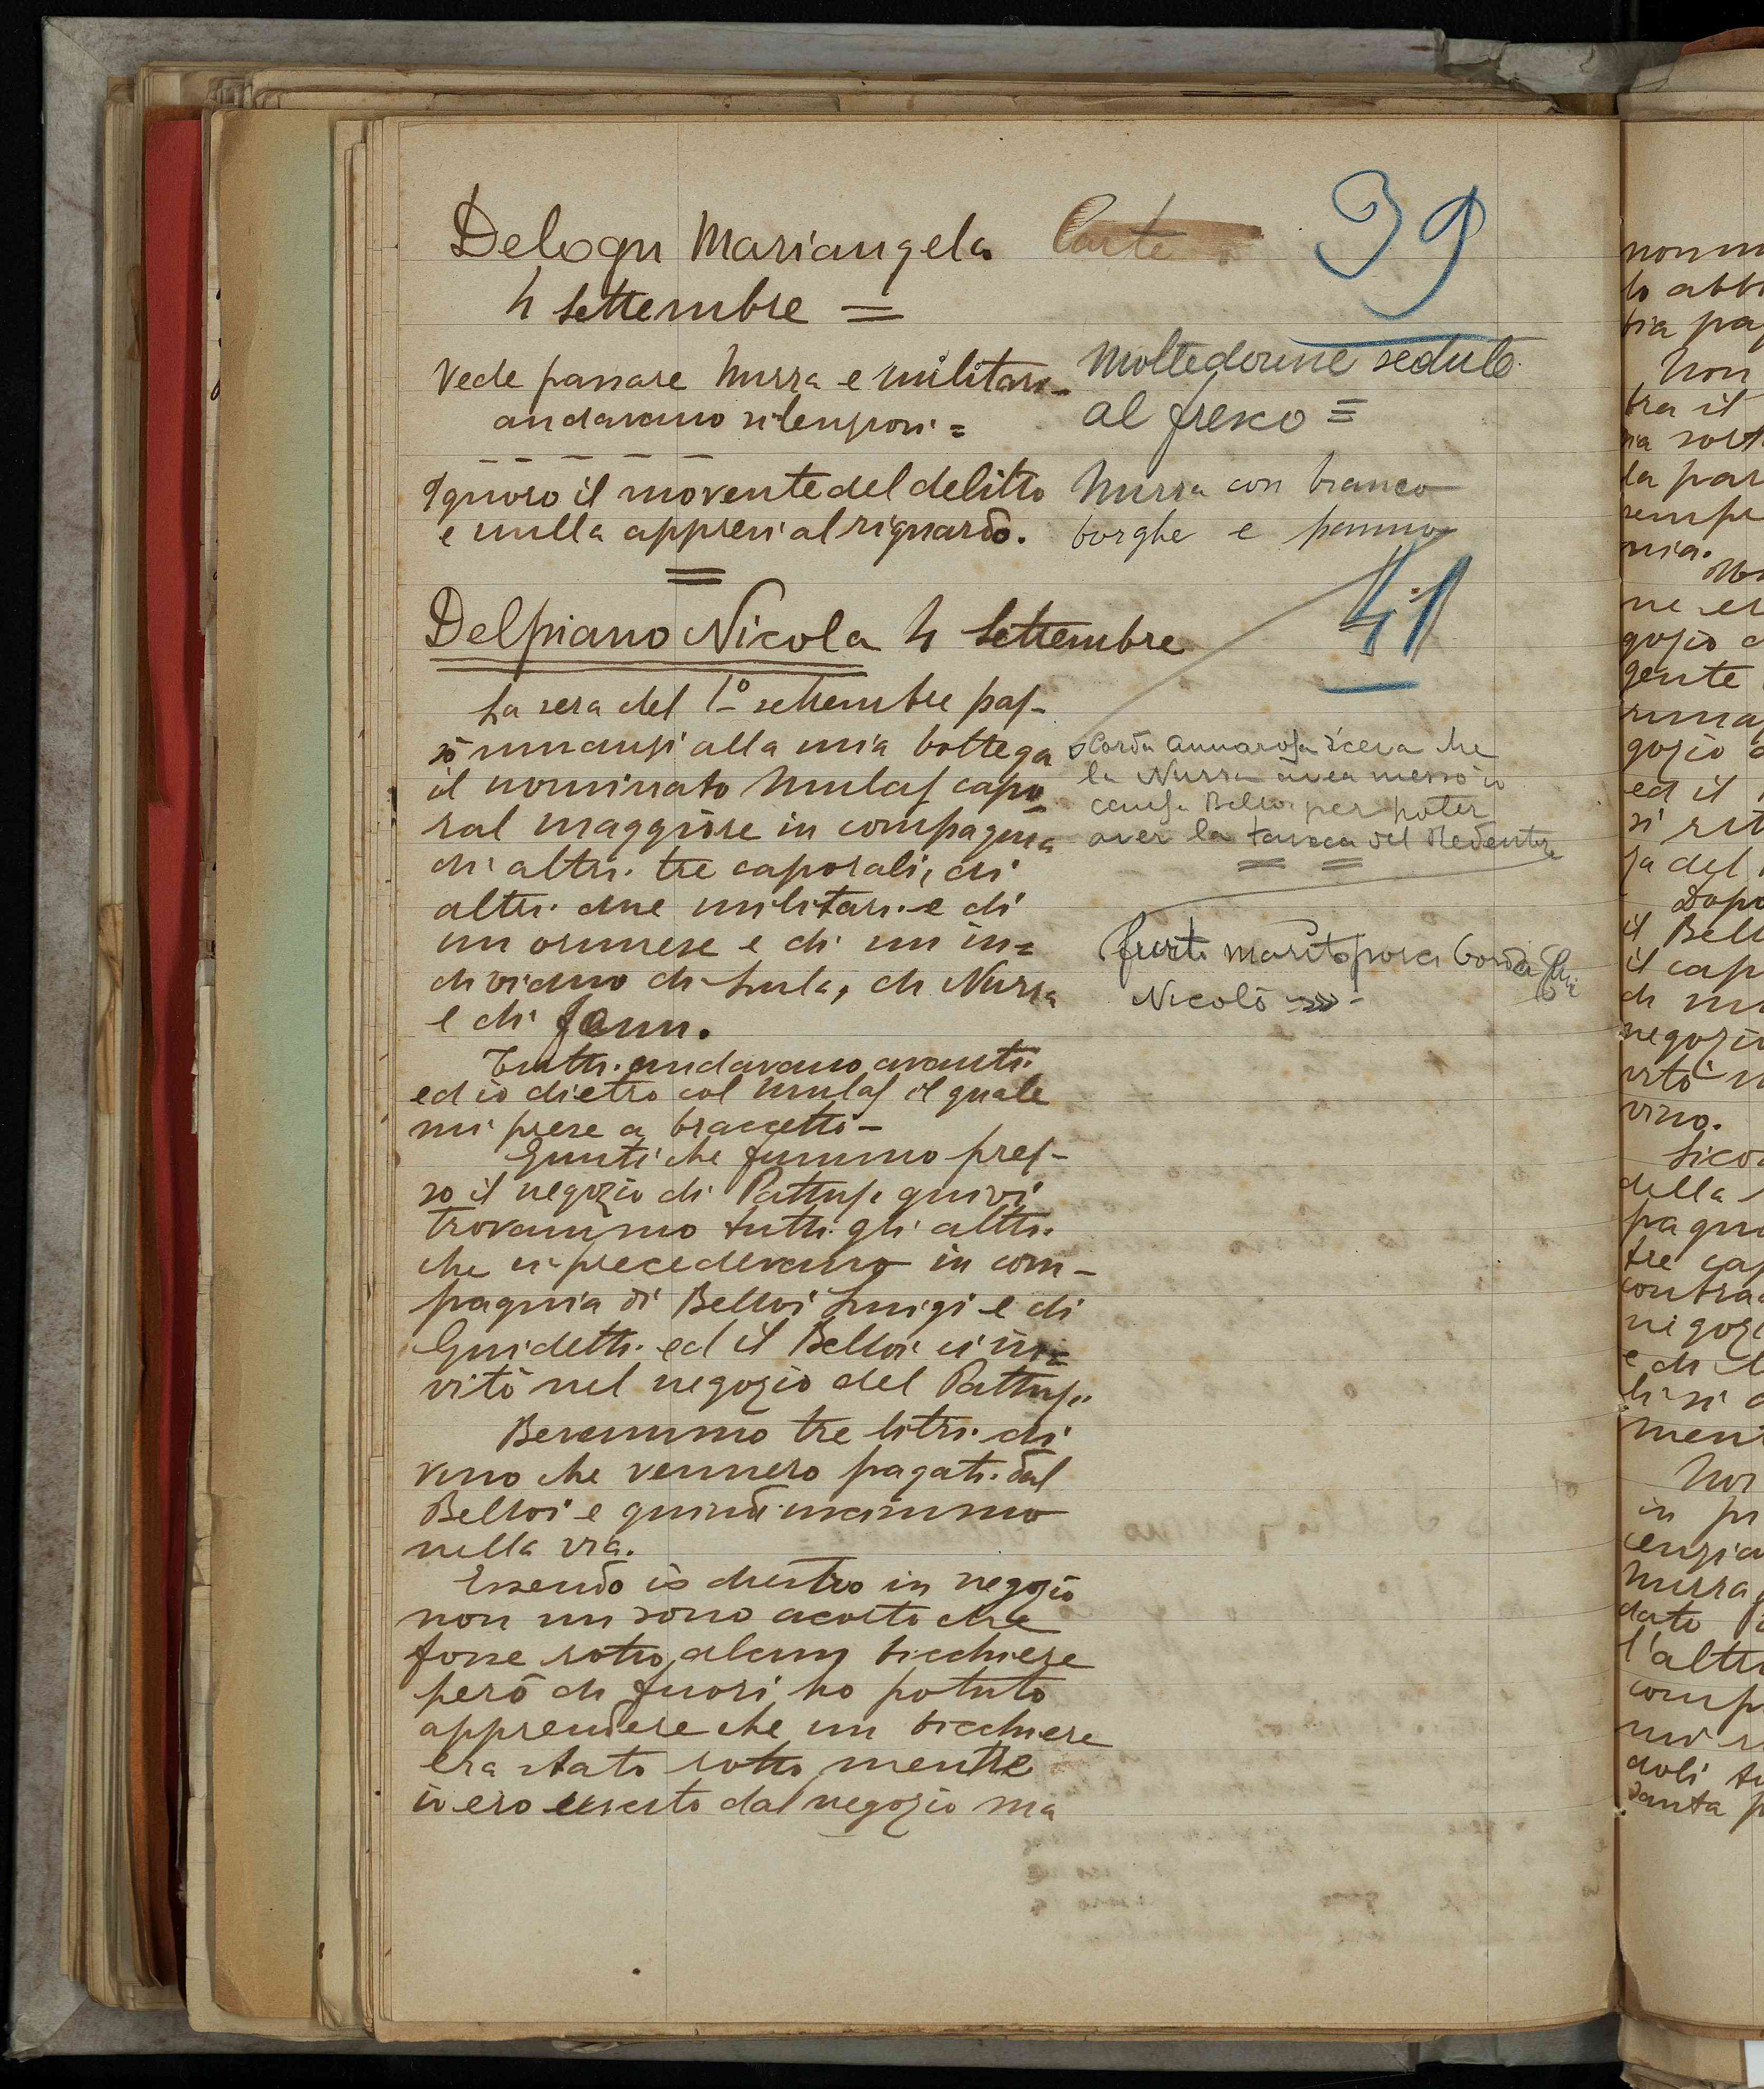 Delogu Mariangela Carte 39
4 Settembre =
Vede passare Nurra e militari
andavano silenziosi =
Molte donne sedute
al fresco =
Ignoro il movente del delitto
e nulla appresi al riguardo.
Nurra con bianco
borghe e panno
Delpiano Nicola 4 Settembre
41
La sera del 1º settembre pas-
sò innanzi alla mia bottega
il nominato Mulas capo-
ral maggiore in compagnia
di altri tre caporali, di
altri due militari e di
un orunese e di un in=
dividuo di Lula, di Nurra
e di Sanu.
Tutti andavano avanti
ed io dietro col Mulas il quale
mi prese a braccetto -
Giunti che fummo pres-
so il negozio di Pattusi quivi
trovammo tutti gli altri
che ci precedevano in com-
pagnia di Belloi Luigi e di
Guidetti ed il Belloi ci in=
vitò nel negozio del Pattusi
Bevemmo tre litri di
vino che vennero pagati dal
Belloi e quindi uscimmo
nella via.
Essendo io dentro in negozio
non mi sono accorto che
fosse rotto alcun bicchiere
però di fuori ho potuto
apprendere che un bicchiere
era stato rotto mentre
io ero uscito dal negozio ma
Corda Annarosa diceva che
la Nurra avea messo in
causa Belloi per poter
aver la tanca del Redentore
furto marito porci Corda
Nicolò